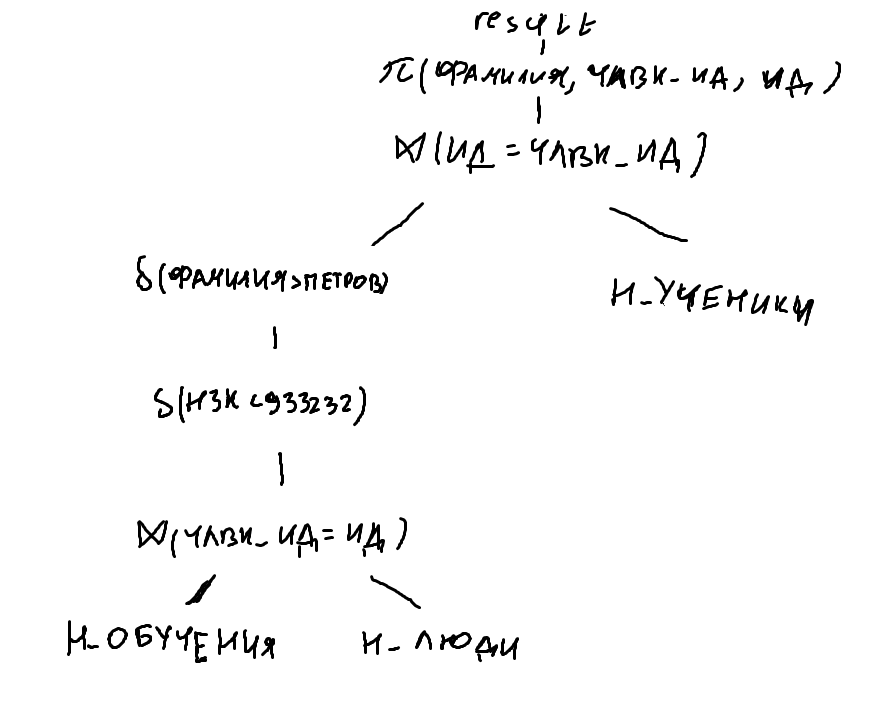 result
π(ФАМИЛИЯ, ЧЛВК_ИД, ИД)
⋈(ИД = ЧЛВК_ИД)
δ(ФАМИЛИЯ>ПЕТРОВ)
Н_УЧЕНИКИ
δ(НЗК <933232)
⋈(ЧЛВК_ИД = ИД)
Н_ОБУЧЕНИЯ
Н_ЛЮДИ